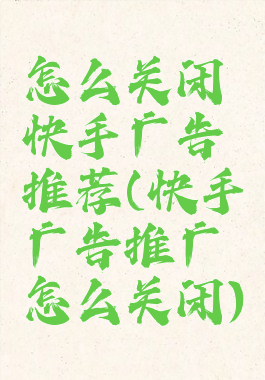 怎么关闭
快手广告
推荐(快手
广告推广
怎么关闭)